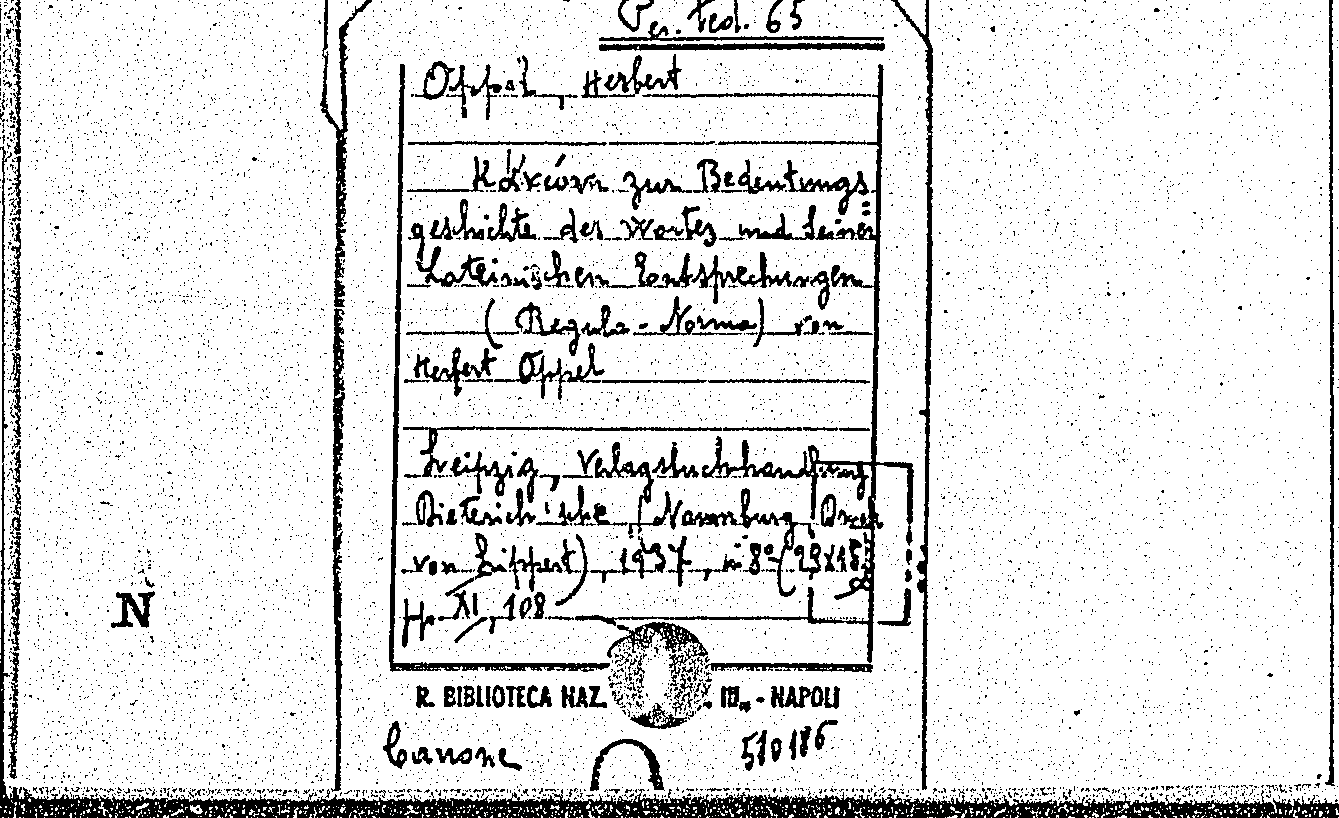 Per. ted. 65
Oppel, Herbert
Κανών zur Bedeutungs
geschichte des Wortes und seiner
Lateinischen Entsprechungen
(Regula - Norma) von
Herfert Oppel
Leipzig, Verlagsbuchhandlung
Dieterich'sche, (Naumburg, Druck
von Lippert), 1937, in 8° (23x15)
pp. XI, 108
N
R. BIBLIOTECA NAZ. . III. - NAPOLI
Canone 510186